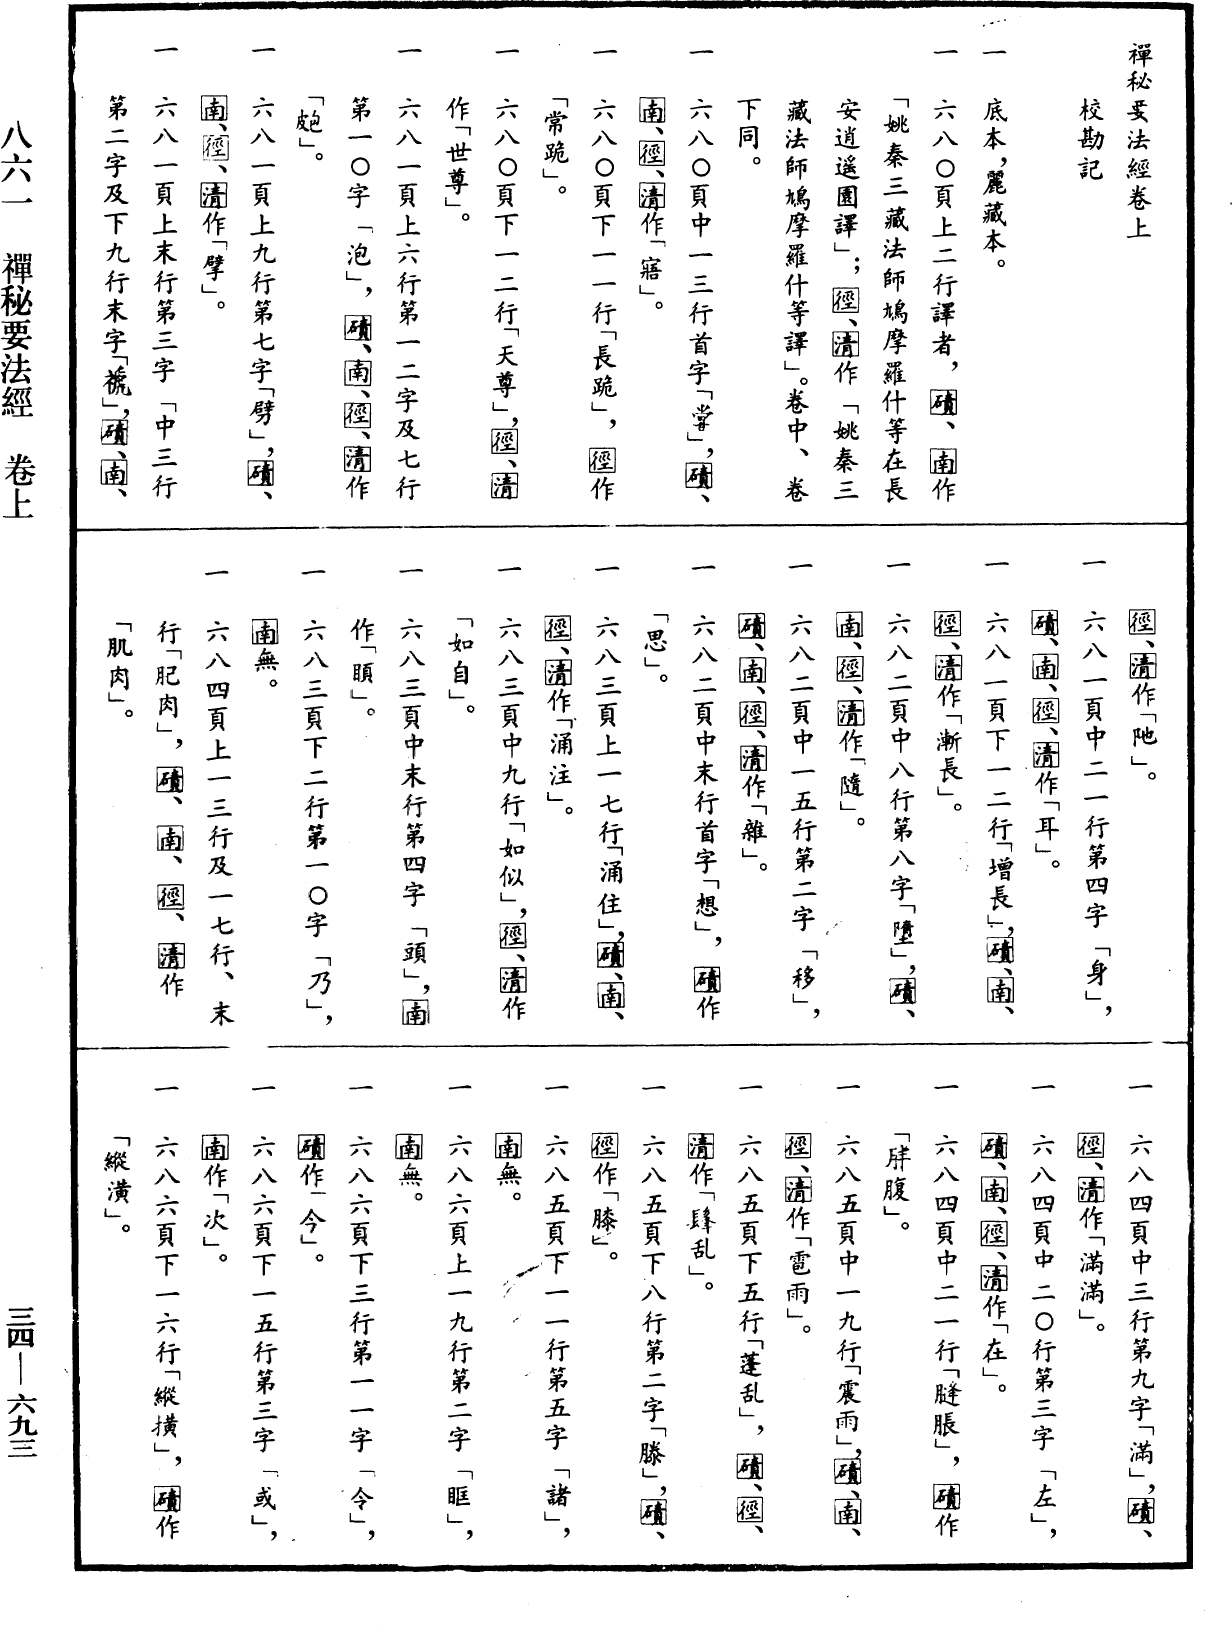 禪秘要法經卷上
校勘記
一 底本,麗藏本。
一 六八〇頁上二行譯者,磧、南作
「姚秦三藏法師鳩摩羅什等在長
安逍遥園譯」;徑、清作「姚秦三
藏法師鳩摩羅什等譯」。卷中、卷
下同。
一 六八〇頁中一三行首字「甞」,磧、
南、徑、清作「寤」。
一 六八〇頁下一一行「長跪」,徑作
「常跪」。
一 六八〇頁下一二行「天尊」,徑、清
作「世尊」。
一 六八一頁上六行第一二字及七行
第一〇字「泡」,磧、南、徑、清作
「皰」。
一 六八一頁上九行第七字「劈」,磧、
南、徑、清作「擘」。
一 六八一頁上末行第三字「中三行
第二字及下九行末字「褫」,磧、南、
徑、清作「阤」。
一 六八一頁中二一行第四字「身」,
磧、南、徑、清作「耳」。
一 六八一頁下一二行「增長」,磧、南、
徑、清作「漸長」。
一 六八二頁中八行第八字「墮」,磧、
南、徑、清作「隨」。
一 六八二頁中一五行第二字「移」,
磧、南、徑、清作「雜」。
一 六八二頁中末行首字「想」,磧作
「思」。
一 六八三頁上一七行「涌住」,磧、南、
徑、清作「涌注」。
一 六八三頁中九行「如似」,徑、清作
「如自」。
一 六八三頁中末行第四字「頭」,南
作「頤」。
一 六八三頁下二行第一〇字「乃」,
南無。
一 六八四頁上一三行及一七行、末
行「肥肉」,磧、南、徑、清作
「肌肉」。
一 六八四頁中三行第九字「滿」,磧、
徑、清作「滿滿」。
一 六八四頁中二〇行第三字「左」,
磧、南、徑、清作「在」。
一 六八四頁中二一行「膖脹」,磧作
「胮腹」。
一 六八五頁中一九行「震雨」,磧、南、
徑、清作「雹雨」。
一 六八五頁下五行「蓬乱」,磧、徑、
清作「肆乱」。
一 六八五頁下八行第二字「滕」,磧、
徑作「膝」。
一 六八五頁下一一行第五字「諸」,
南無。
一 六八六頁上一九行第二字「眶」,
南無。
一 六八六頁下三行第一一字「令」,
磧作「今」。
一 六八六頁下一五行第三字「或」,
南作「次」。
一 六八六頁下一六行「縱橫」,磧作
「縱潢」。
八六一 禪秘要法經 卷上
三四—六九三